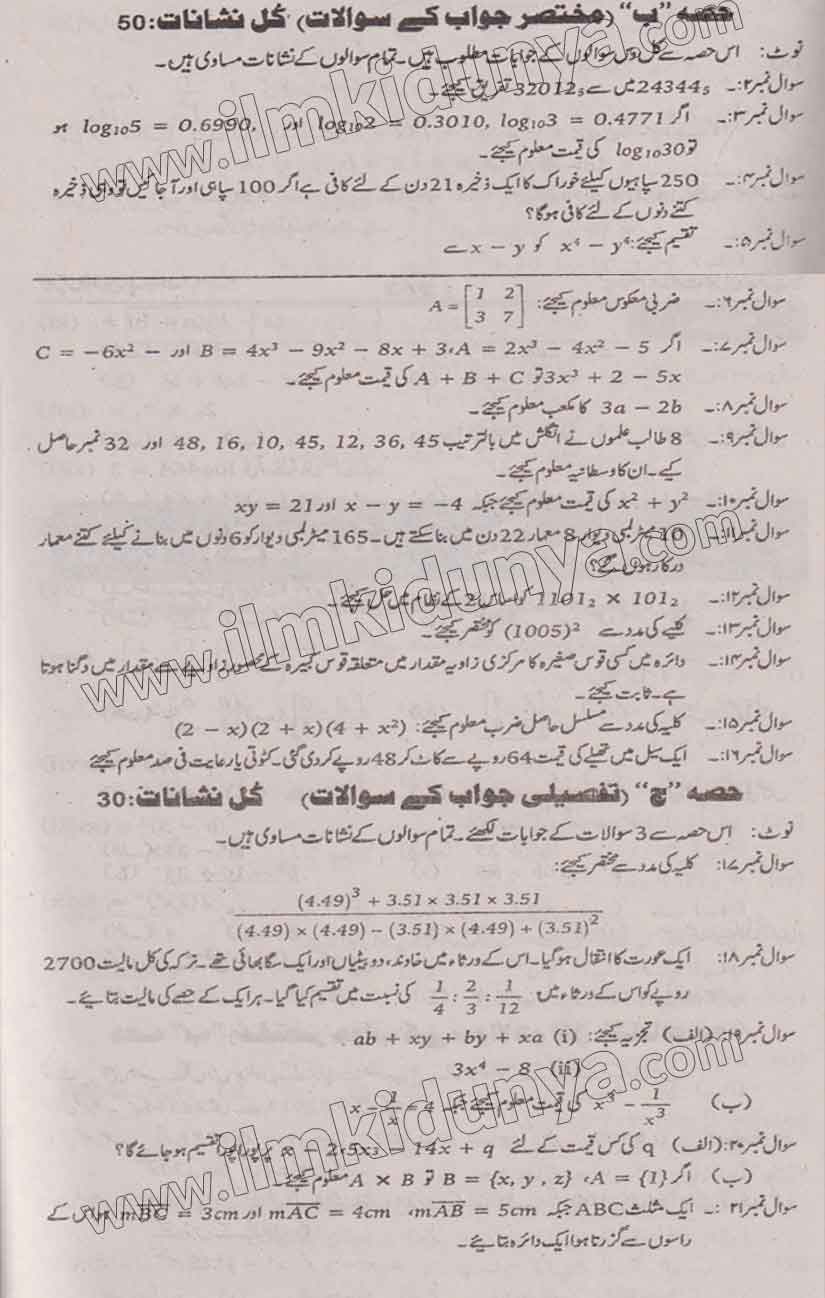 حصہ "ب" (مختصر جواب کے سوالات) کُل نشانات: 50
نوٹ: اس حصہ سے کل دس سوالوں کے جوابات مطلوب ہیں۔ تمام سوالوں کے نشانات مساوی ہیں۔
سوال نمبر ۲:۔ 24344₅ میں سے 32012₅ تفریق کیجئے۔
سوال نمبر ۳:۔ اگر log₁₀2 = 0.3010, log₁₀3 = 0.4771 اور log₁₀5 = 0.6990, ہو
تو log₁₀30 کی قیمت معلوم کیجئے۔
سوال نمبر ۴:۔ 250 سپاہیوں کیلئے خوراک کا ایک ذخیرہ 21 دن کے لئے کافی ہے اگر 100 سپاہی اور آ جائیں تو وہی ذخیرہ
کتنے دنوں کے لئے کافی ہوگا؟
سوال نمبر ۵:۔ تقسیم کیجئے: x⁴ − y⁴ کو x − y سے
سوال نمبر ۶:۔ ضربی معکوس معلوم کیجئے: A = [1 2
3 7]
سوال نمبر ۷:۔ اگر A = 2x³ − 4x² − 5، B = 4x³ − 9x² − 8x + 3 اور C = −6x² −
3x³ + 2 − 5x تو A + B + C کی قیمت معلوم کیجئے۔
سوال نمبر ۸:۔ 3a − 2b کا مکعب معلوم کیجئے۔
سوال نمبر ۹:۔ 8 طالب علموں نے انگلش میں بالترتیب 48, 16, 10, 45, 12, 36, 45 اور 32 نمبر حاصل
کیے۔ ان کا وسطانیہ معلوم کیجئے۔
سوال نمبر ۱۰:۔ x² + y² کی قیمت معلوم کیجئے جبکہ x − y = −4 اور xy = 21
سوال نمبر ۱۱:۔ 10 میٹر لمبی دیوار 8 معمار 22 دن میں بنا سکتے ہیں۔ 165 میٹر لمبی دیوار کو 6 دنوں میں بنانے کیلئے کتنے معمار
درکار ہوں گے؟
سوال نمبر ۱۲:۔ 1101₂ × 101₂ کو اساس 2 کے نظام میں حل کیجئے۔
سوال نمبر ۱۳:۔ کلیے کی مدد سے (1005)² کو مختصر کیجئے۔
سوال نمبر ۱۴:۔ دائرہ میں کسی قوس صغیرہ کا مرکزی زاویہ مقدار میں متعلقہ قوس کبیرہ کے محصور زاویے سے مقدار میں دگنا ہوتا
ہے۔ ثابت کیجئے۔
سوال نمبر ۱۵:۔ کلیہ کی مدد سے مسلسل حاصل ضرب معلوم کیجئے: (2 − x)(2 + x)(4 + x²)
سوال نمبر ۱۶:۔ ایک سیل میں تھیلے کی قیمت 64 روپے سے کاٹ کر 48 روپے کر دی گئی۔ کٹوتی یا رعایت فی صد معلوم کیجئے
حصہ "ج" (تفصیلی جواب کے سوالات) کُل نشانات: 30
نوٹ: اس حصہ سے 3 سوالات کے جوابات لکھئے۔ تمام سوالوں کے نشانات مساوی ہیں۔
سوال نمبر ۱۷:۔ کلیہ کی مدد سے مختصر کیجئے:
(4.49)³ + 3.51 × 3.51 × 3.51
(4.49) × (4.49) − (3.51) × (4.49) + (3.51)²
سوال نمبر ۱۸:۔ ایک عورت کا انتقال ہوگیا۔ اس کے ورثاء میں خاوند، دو بیٹیاں اور ایک سگا بھائی تھے۔ ترکہ کی کل مالیت 2700
روپے کو اس کے ورثاء میں 1/4 : 2/3 : 1/12 کی نسبت میں تقسیم کیا گیا۔ ہر ایک کے حصے کی مالیت بتایئے۔
سوال نمبر ۱۹: (الف) تجزیہ کیجئے: (i) ab + xy + by + xa
(ii) 3x⁴ − 8
(ب) x³ − 1/x³ کی قیمت معلوم کیجئے جبکہ x − 1/x = 4
سوال نمبر ۲۰: (الف) q کی کس قیمت کے لئے 5x³ − 14x + q، x − 2 پر پورا پورا تقسیم ہو جائے گا؟
(ب) اگر A = {1}، B = {x, y, z} تو A × B معلوم کیجئے۔
سوال نمبر ۲۱:۔ ایک مثلث ABC جبکہ mAB = 5cm، mAC = 4cm اور mBC = 3cm ہو اس کے
راسوں سے گزرتا ہوا ایک دائرہ بنایئے۔
www.ilmkidunya.com
www.ilmkidunya.com
www.ilmkidunya.com